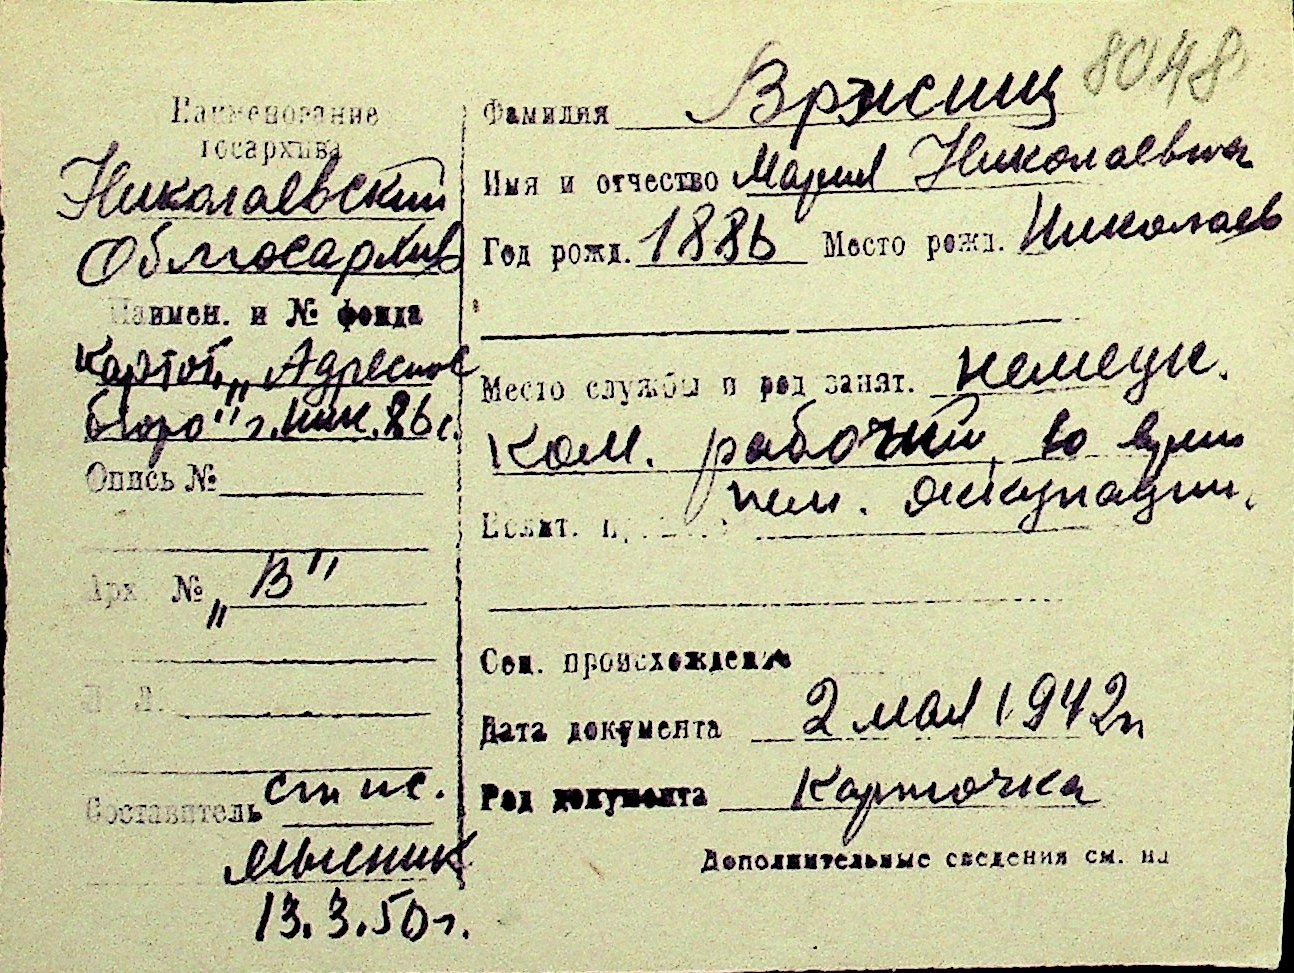 8048
Наименование
госархива
Николаевский
Облгосархив
Наимен. и № фонда
Картот. „Адресное
бюро" г. Ник. 86 с.
Опись №
Арх. № „В"
Л. Л.
Составитель ст. н. с.
13.3.50 г.
Фамилия Вржсищ
Имя и отчество Мария Николаевна
Год рожд. 1886 Место рожд. Николаев
Место службы и род занят. немецк.
ком. рабочий, во врем
нем. оккупации.
Полит.
Соц. происхождение
Дата документа 2 мая 1942 г
Род документа Карточка
Дополнительные сведения см. на